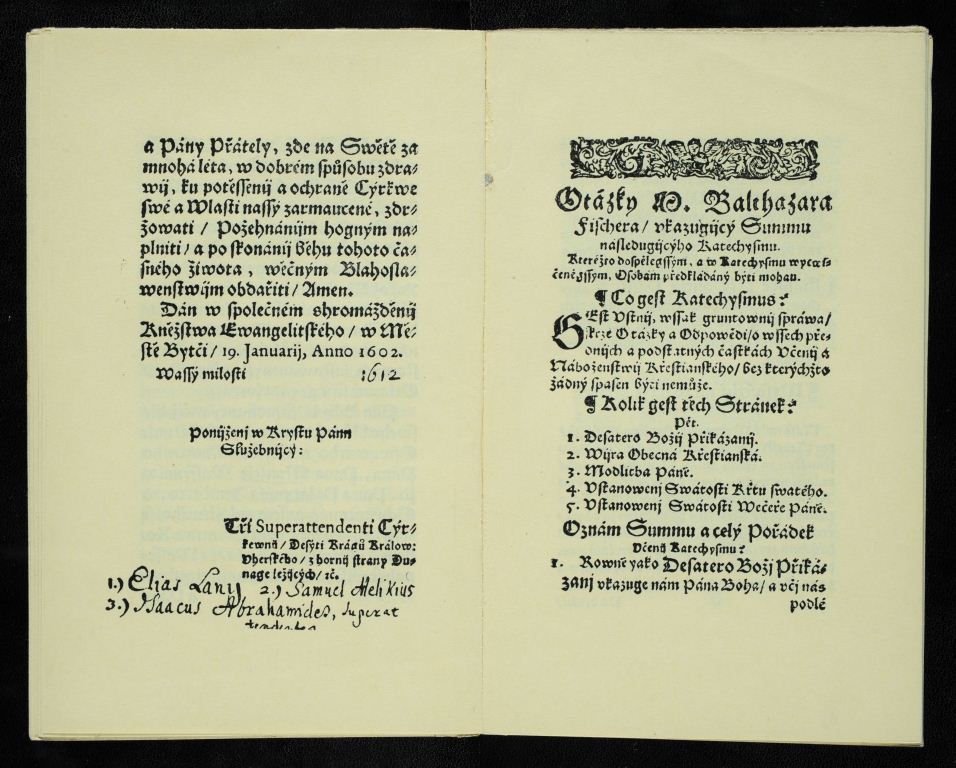 a Pány Přátely, zde na Swětě za
mnohá léta, w dobrém spůsobu zdra-
wij, ku potěssenij a ochraně Cýrkwe
swé a Wlasti nassý zarmaucené, zdr-
žowati / Požehnánijm hogným na-
plniti / a po skonánij běhu tohoto ča-
sného žiwota, wěčným Blahosla-
wenstwijm obdařiti / Amen.
Dán w společném shromážděnij
Kněžstwa Ewangelitského / w Mě-
stě Bytči / 19. Januarij, Anno 1602.
Wassý milosti 1612
Poníženj w Krystu Pánu
Služebnijcy:
Tři Superattendenti Cýr-
kewnij / Desýti Krágů Králow:
Uherského / z hornij strany Du-
nage ležijcých / ꝛč.
1.) Elias Lany 2.) Samuel Melikius
3.) Isaacus Abrahamides, superat
tendentes
Otázky M. Balthazara
Fischera / vkazugijcý Summu
následugijcýho Katechysmu.
Kteréžto dospělegssým, a w Katechysmu wycwi-
čeněgssým, Osobám předkládány býti mohau.
¶ Co gest Katechysmus?
GEst Vstnij, wssak gruntownij spráwa /
skrze Otázky a Odpowědi / o wssech pře-
dnijch a podstatných částkách Včenij a
Náboženstwij Křestianského / bez kterýchžto
žádný spasen býti nemůže.
¶ Kolik gest těch Stránek?
Pět.
1. Desatero Božij Přikázanij.
2. Wijra Obecná Křestianská.
3. Modlitba Páně.
4. Vstanowenj Swátosti Křtu swatého.
5. Vstanowenj Swátosti Wečeře Páně.
Oznám Summu a celý Pořádek
Včenij Katechysmu?
1. Rowně yako Desatero Božj Přiká-
zanj vkazuge nám Pána Boha / a včj nás
podlé